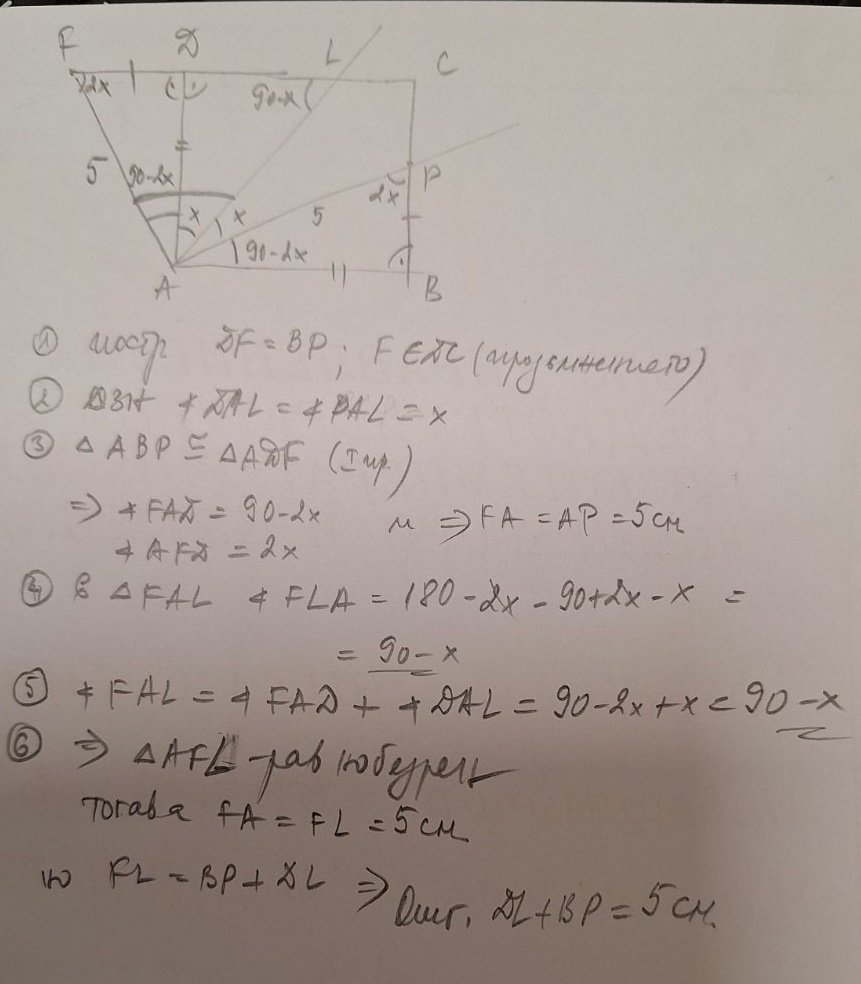 F D L C
2x 90-x
5 90-2x x x 5 2x P
90-2x
A B
① постр DF = BP ; F ∈ DC (продължението)
② озн ∢DAL = ∢PAL = x
③ △ABP ≅ △ADF (I пр.)
⇒ ∢FAD = 90-2x и ⇒ FA = AP = 5 см
∢AFD = 2x
④ в △FAL ∢FLA = 180 - 2x - 90 + 2x - x =
= 90-x
⑤ ∢FAL = ∢FAD + ∢DAL = 90-2x + x = 90-x
⑥ ⇒ △AFL - равнобедрен
тогава FA = FL = 5 см
но FL = BP + DL ⇒ Отг. DL + BP = 5 см.